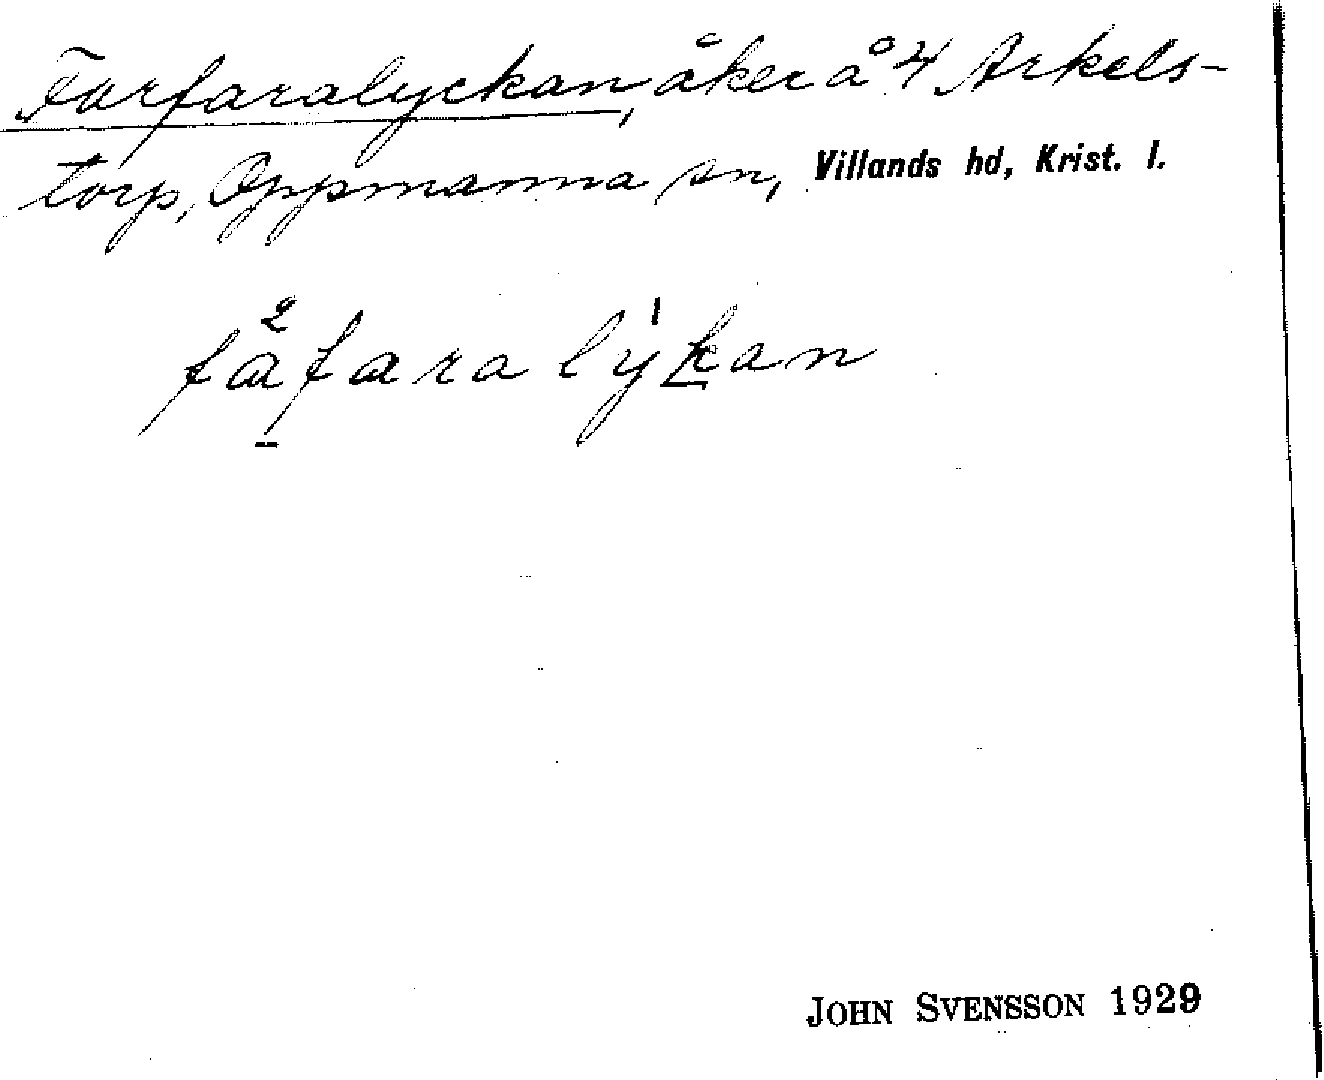 Farfaralyckan, åker å 4 Arkels-
torp, Oppmanna sn, Villands hd, Krist. l.
fafaralykan
JOHN SVENSSON 1929